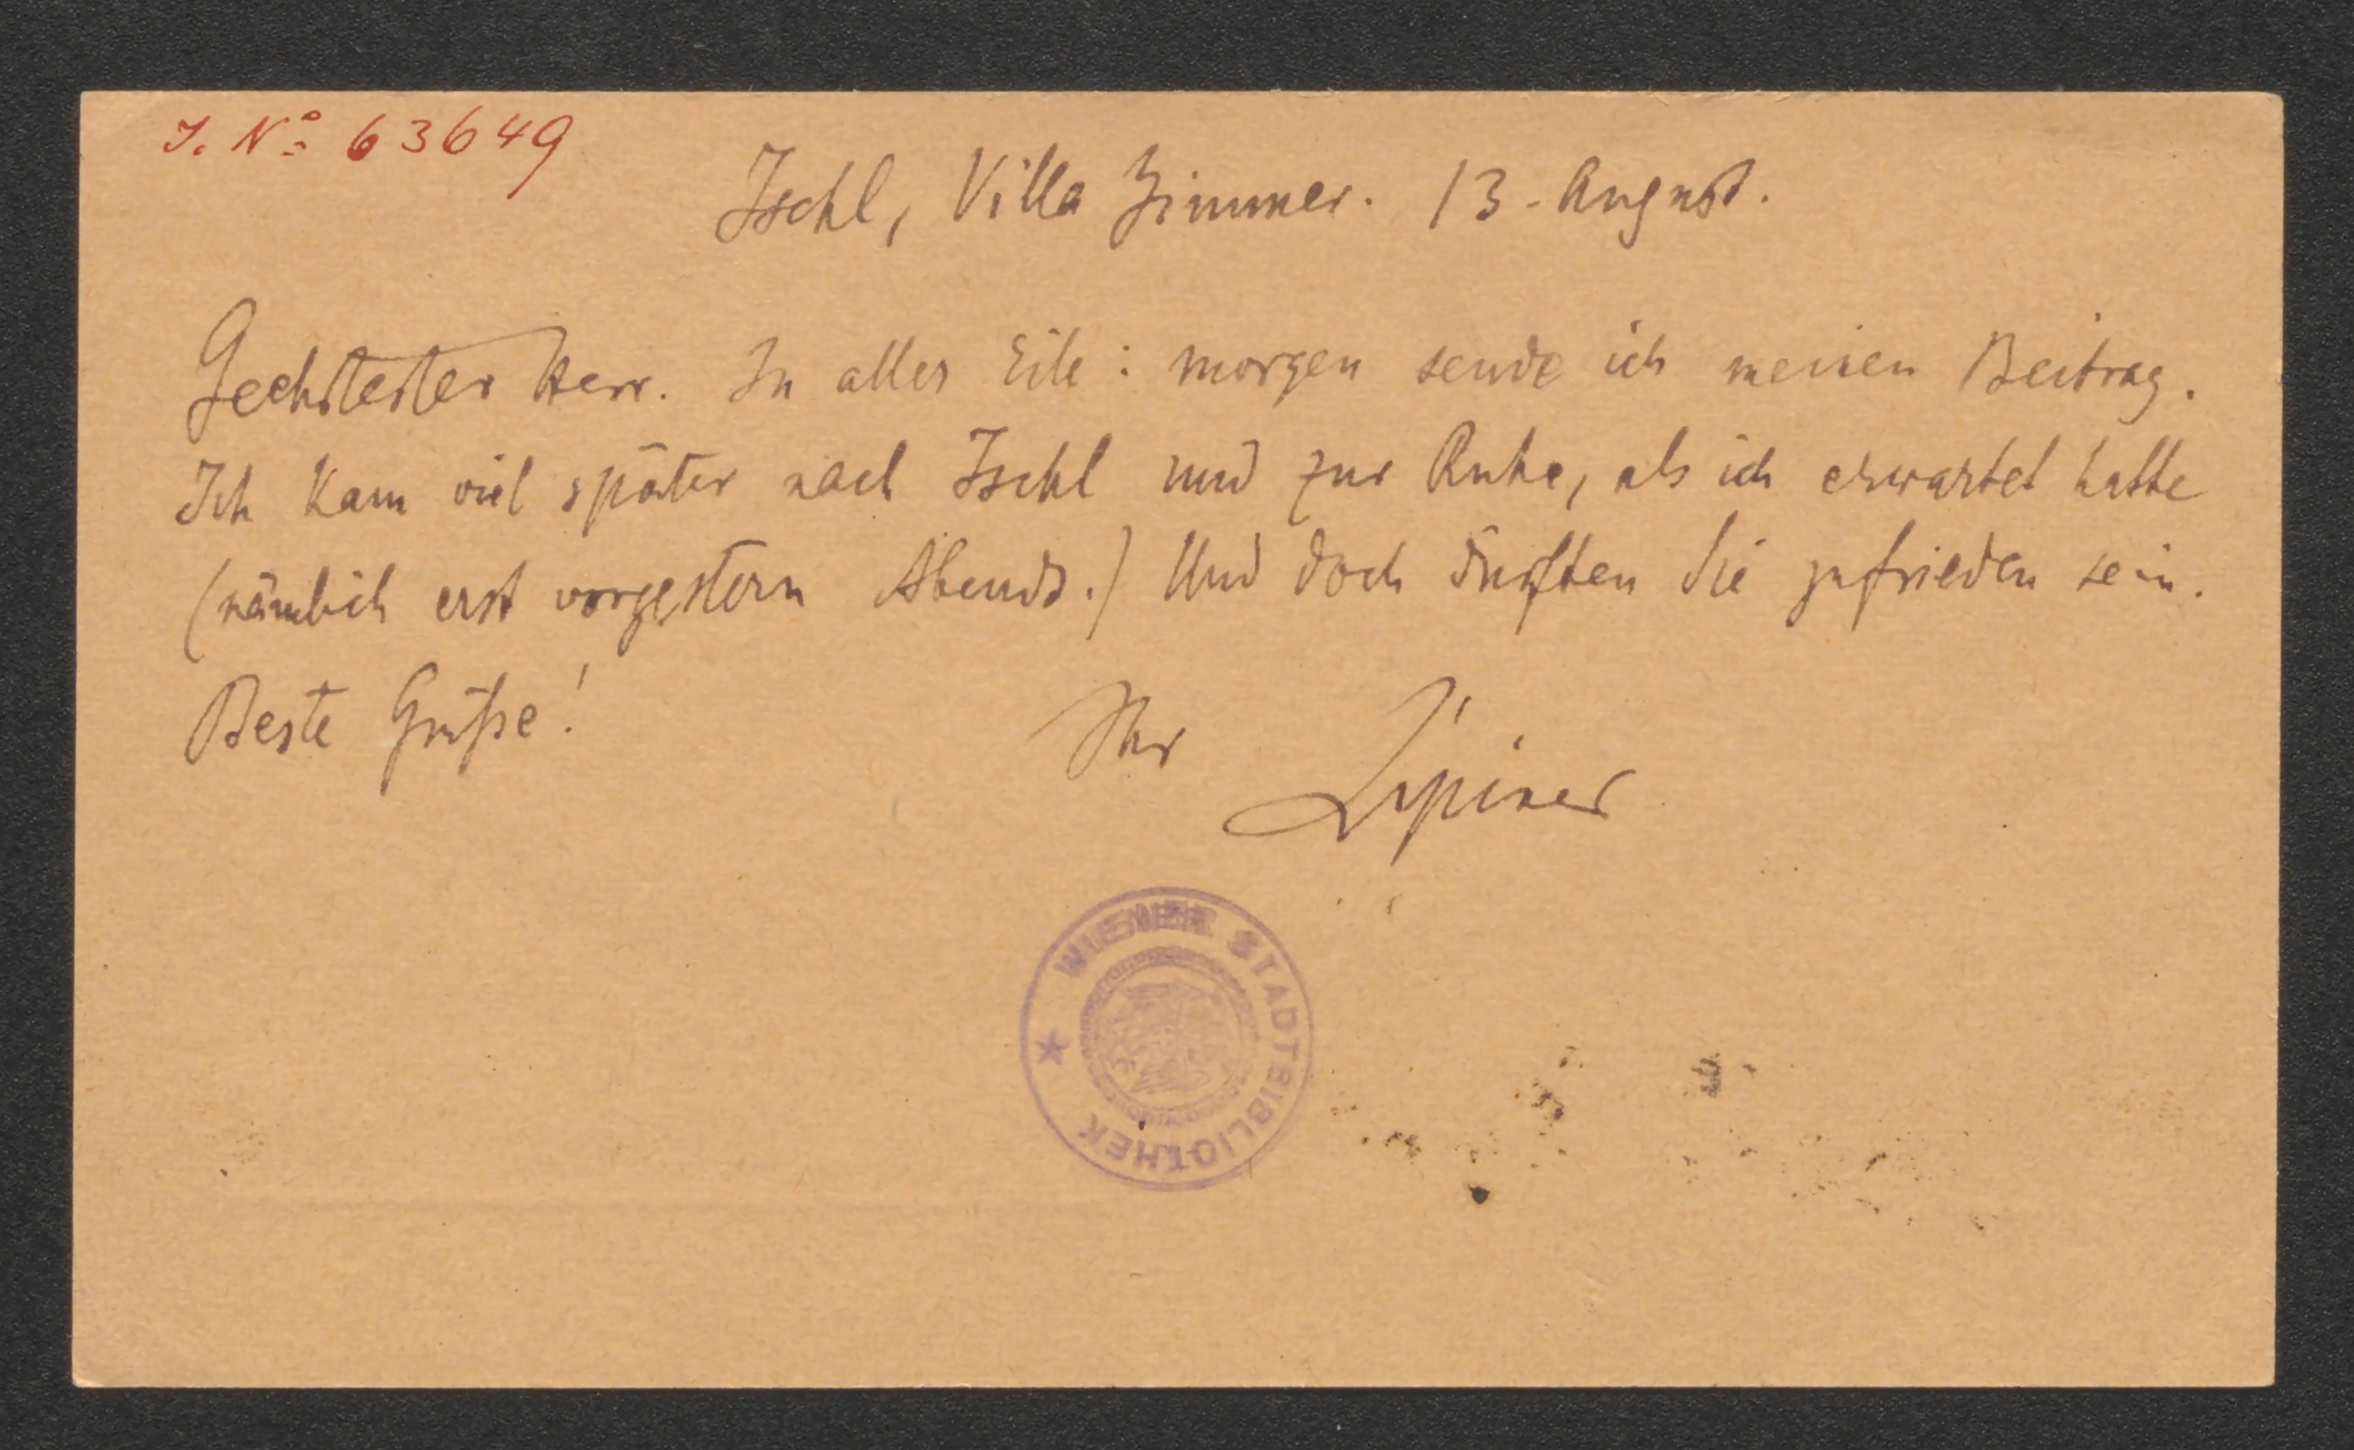 J. No 63649
Ischl, Villa Zimmer. 13. August.
Geehrtester Herr. In aller Eile: morgen sende ich meinen Beitrag.
Ich kam viel später nach Ischl und zur Ruhe, als ich erwartet hatte
(nämlich erst vorgestern Abends.) Und doch dürften Sie zufrieden sein.
Beste Grüße!
Ihr Lipiner
WIENER STADTBIBLIOTHEK